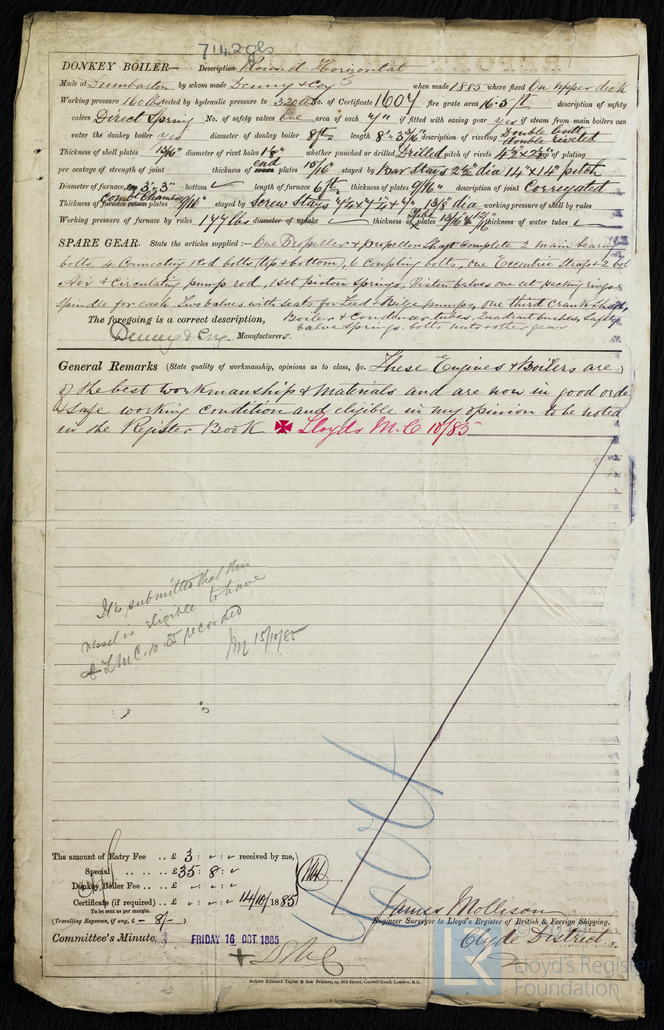 7142 gls
DONKEY BOILER— Description Round Horizontal
Made at Dumbarton by whom made Denny & Coy when made 1885 where fixed On upper deck
Working pressure 160 lbs tested by hydraulic pressure to 320 lbs No. of Certificate 1607 fire grate area 16.5 ft description of safety
valves Direct Spring No. of safety valves One area of each if fitted with easing gear yes if steam from main boilers can
enter the donkey boiler yes diameter of donkey boiler 8 ft length description of riveting Double butt, double riveted
Thickness of shell plates diameter of rivet holes whether punched or drilled Drilled pitch of rivets of plating
per centage of strength of joint thickness of end plates 10/16" stayed by Bar Stays 2½" dia 14" x 14" pitch
Diameter of furnace, 3'.3" bottom length of furnace 6 ft thickness of plates 9/16" description of joint Corrugated
Thickness of Comb. Chamber plates 9/16" stayed by Screw Stays dia working pressure of shell by rules
Working pressure of furnace by rules 177 lbs diameter of uptake thickness of plates thickness of water tubes
SPARE GEAR. State the articles supplied:— One Propeller & propeller Shaft complete 2 main bearing
bolts, 4 Connecting Rod bolts (top & bottom), 6 Coupling bolts, one Eccentric Strap & 2 bolts
Air & Circulating pump rod, 1 set piston springs, Piston valves one set packing rings &
Spindle for each. Two valves with seats for Feed & Bilge pumps, one third Crank Shaft,
The foregoing is a correct description, Boiler & Condenser tubes, Quadrant bushes, Safety
valve springs. bolts nuts & other gear
Denny & Coy. Manufacturers.
General Remarks (State quality of workmanship, opinions as to class, &c. These Engines & Boilers are
of the best workmanship & Materials and are now in good order
& Safe working condition and eligible in my opinion to be noted
in the Register Book ✠ Lloyds M.C 10/85
It is submitted that this
vessel is eligible to have
✠ LMC. 10.85 recorded
15/10/85
The amount of Entry Fee .. £ 3 : received by me,
Special .. .. £35 : 8 :
Donkey Boiler Fee .. £
Certificate (if required) .. £ 14/10/1885
To be sent as per margin.
(Travelling Expenses, if any, £ – 8/– )
James Mollison
Engineer Surveyor to Lloyd's Register of British & Foreign Shipping.
Clyde District
Committee's Minute, FRIDAY 16 OCT 1885
+ LMC
Robert Edmund Taylor & Son Printers, 19, Old Street, Goswell Road, London, E.C.
Lloyd's Register
Foundation